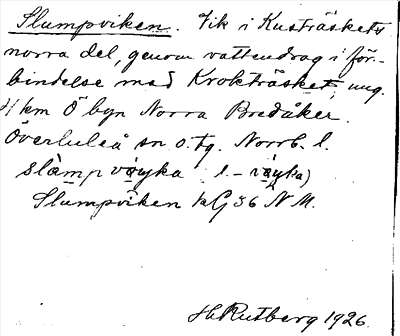 Slumpviken. Vik i Kusträskets
norra del, genom vattendrag i för-
bindelse med Krokträsket, ung.
4 km Ö byn Norra Bredåker.
Överluleå sn o. tg. Norrb. l.
slàmpvøyka l. - vøyka)
Slumpviken kG 36 N M.
H. Rutberg 1926.